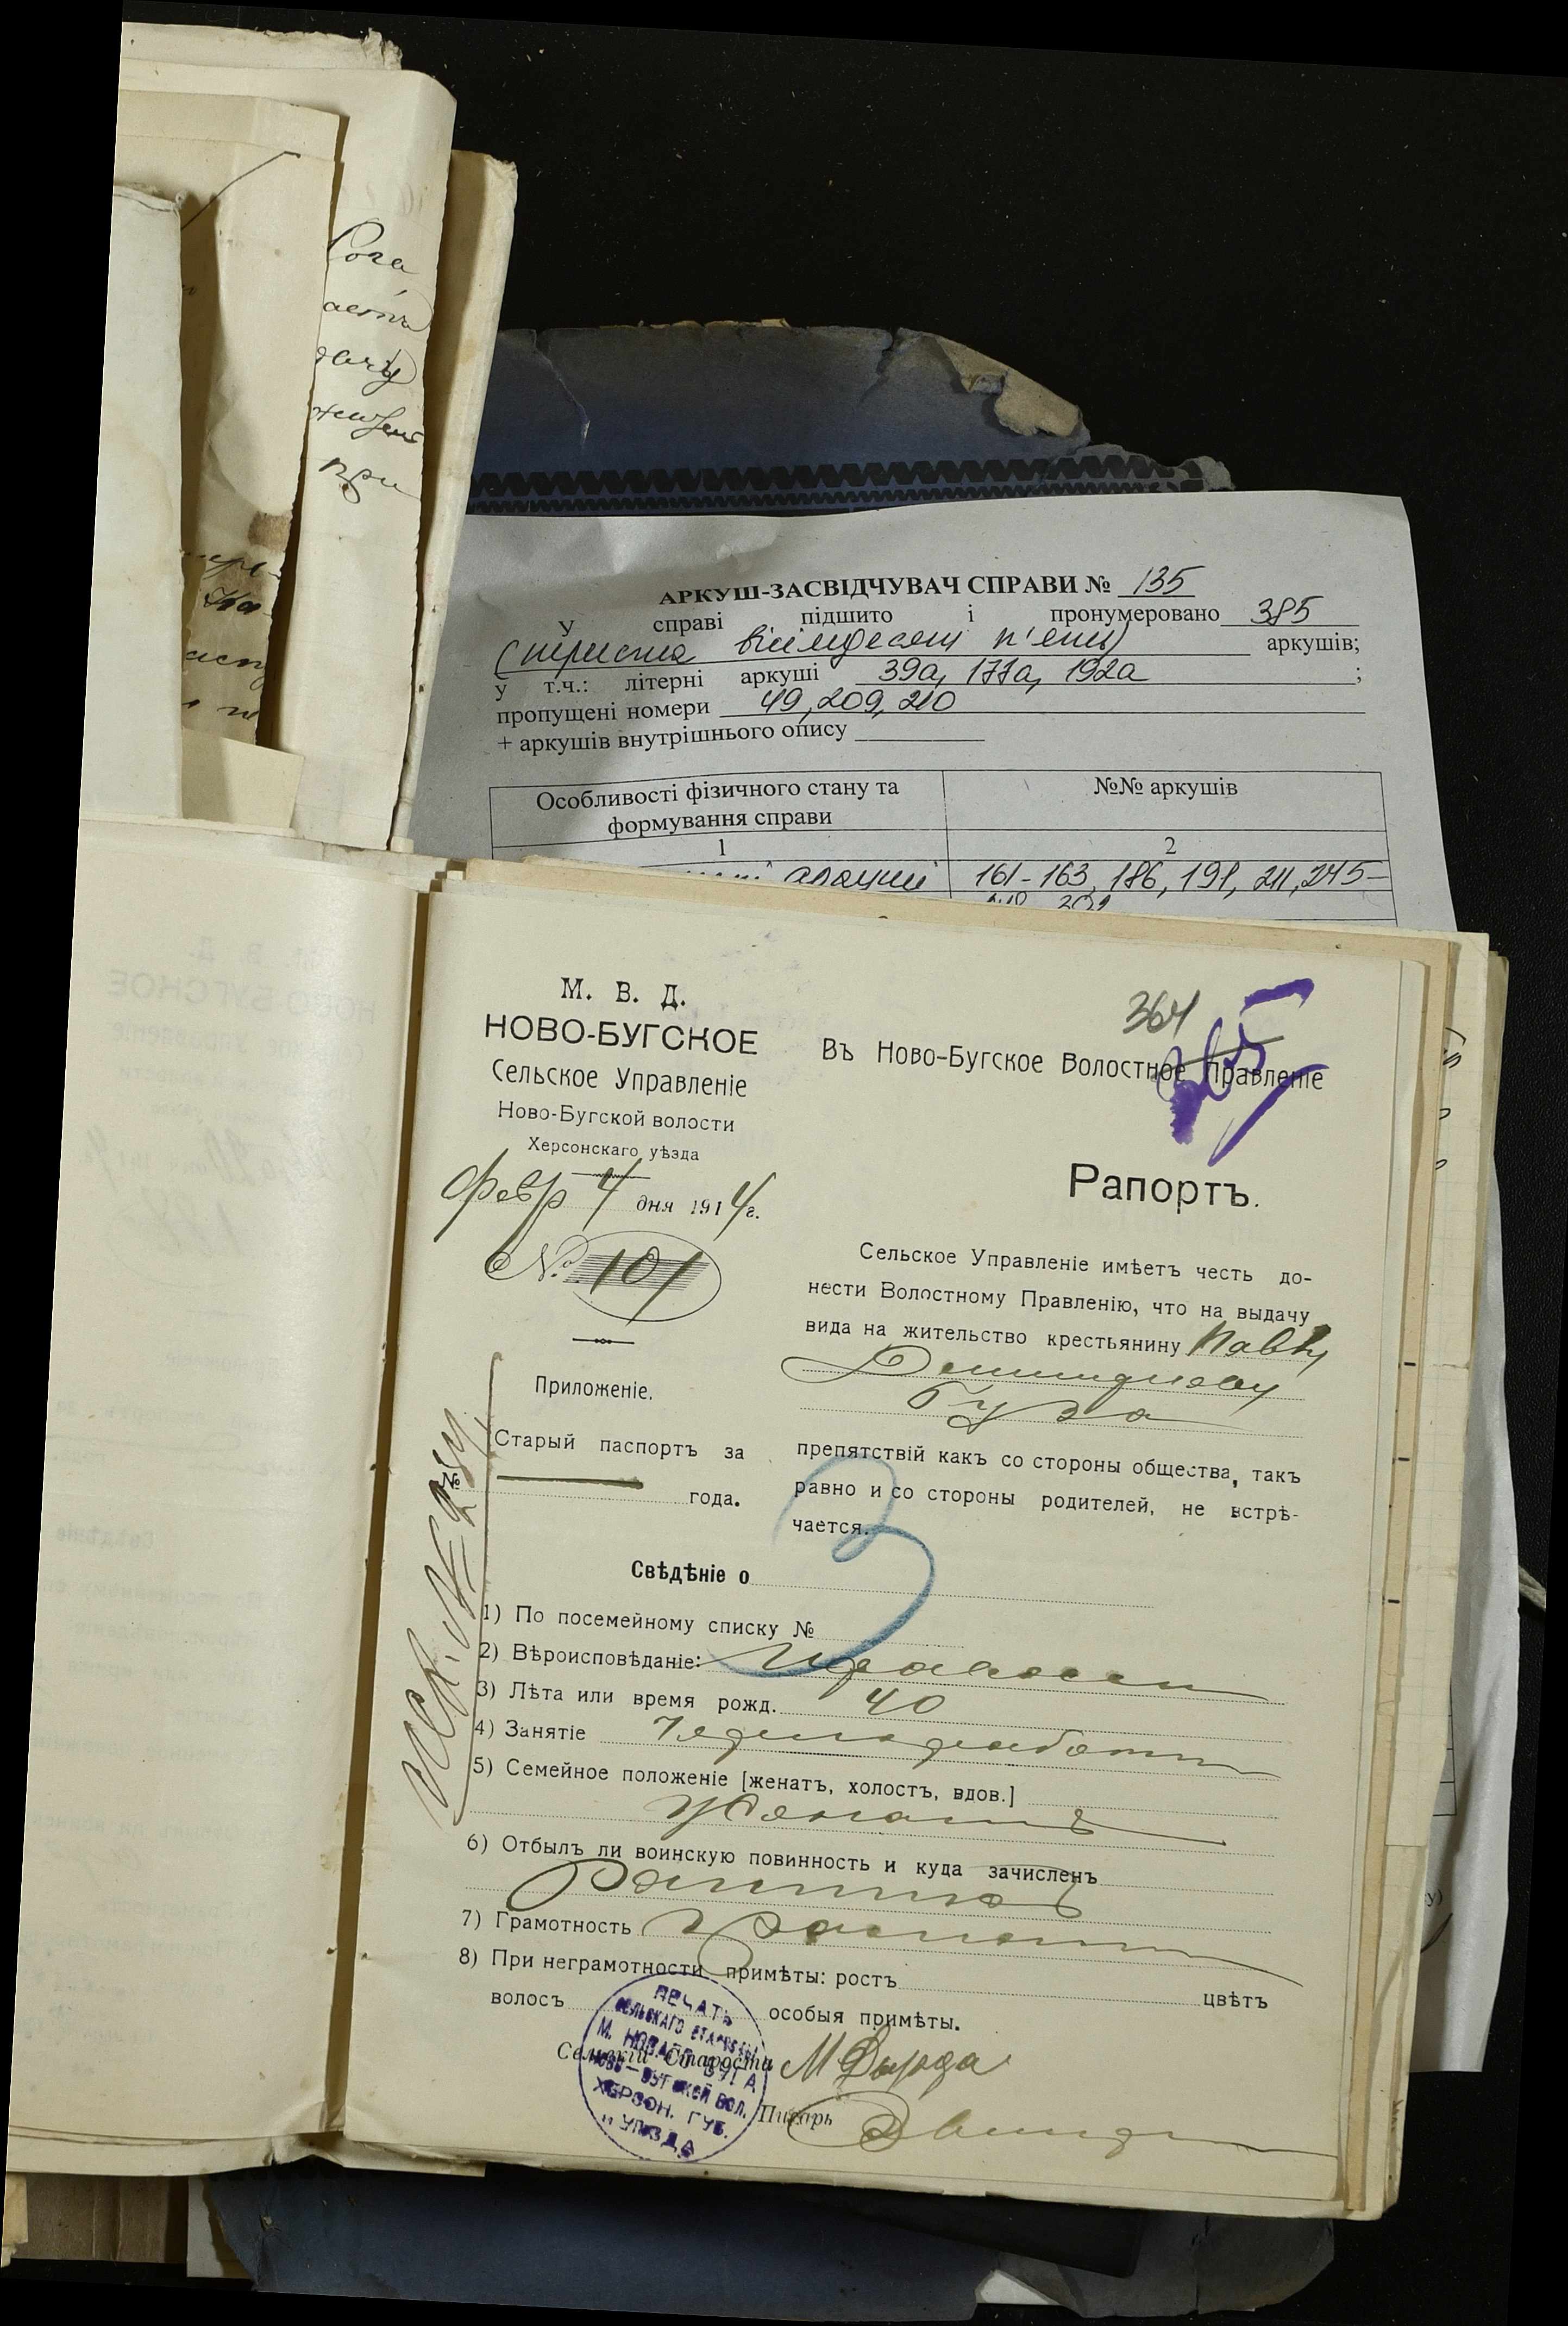 Сога
при
АРКУШ-ЗАСВІДЧУВАЧ СПРАВИ № 135
У справі підшито і пронумеровано 385
(триста вісімдесят п'ять) аркушів;
у т.ч.: літерні аркуші 39а, 177а, 192а ;
пропущені номери 49, 209, 210
+ аркушів внутрішнього опису
Особливості фізичного стану та формування справи
№№ аркушів
1
2
161-163, 186, 191, 211, 245-
М. В. Д.
НОВО-БУГСКОЕ
Сельское Управленіе
Ново-Бугской волости
Херсонскаго уѣзда
Февр 4 дня 1914г.
№ 101
Приложеніе.
Старый паспортъ за
№
года.
364
365
Въ Ново-Бугское Волостное Правленіе
Рапортъ.
Сельское Управленіе имѣетъ честь до-
нести Волостному Правленію, что на выдачу
вида на жительство крестьянину Павлу
Демидову
Гуза
препятствій какъ со стороны общества, такъ
равно и со стороны родителей, не встрѣ-
чается.
Свѣдѣніе о
1) По посемейному списку №
2) Вѣроисповѣданіе: Правосл
3) Лѣта или время рожд. 40
4) Занятіе
5) Семейное положеніе [женатъ, холостъ, вдов.]
Женатъ
6) Отбылъ ли воинскую повинность и куда зачисленъ
Ратникъ
7) Грамотность Грамотн
8) При неграмотности примѣты: ростъ цвѣтъ
волосъ особыя примѣты.
Сельскій Староста М Дырда
Писарь
ПЕЧАТЬ
СЕЛЬСКАГО СТАРОСТЫ
М. НОВАГО БУГА
НОВО-БУГСКОЙ ВОЛ.
ХЕРСОН. ГУБ.
И УѢЗДА